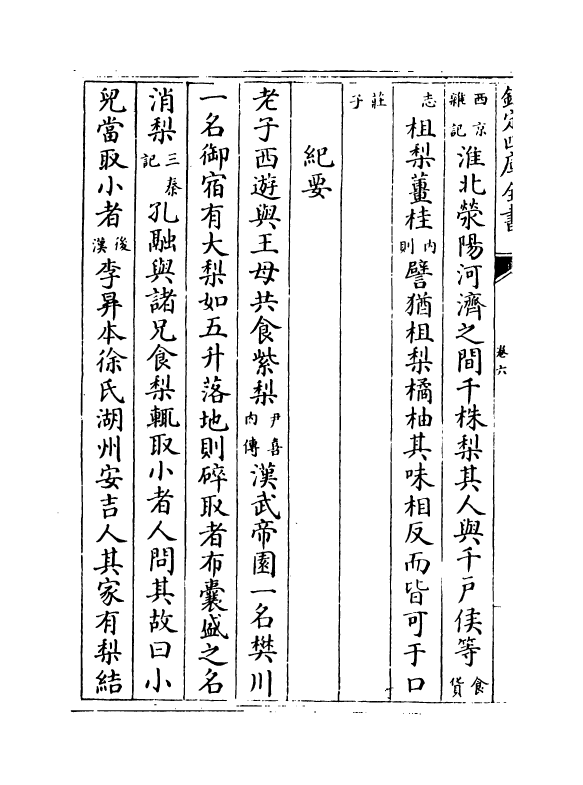 欽定四庫全書
卷六
西京雜記淮北滎陽河濟之間千株梨其人與千戸侯等食貨
志柤梨薑桂内則譬猶柤梨橘柚其味相反而皆可于口
莊子
紀要
老子西遊與王母共食紫梨尹喜内傳漢武帝園一名樊川
一名御宿有大梨如五升落地則碎取者布囊盛之名
消梨三秦記孔融與諸兄食梨輒取小者人問其故曰小
兒當取小者後漢李昇本徐氏湖州安吉人其家有梨結